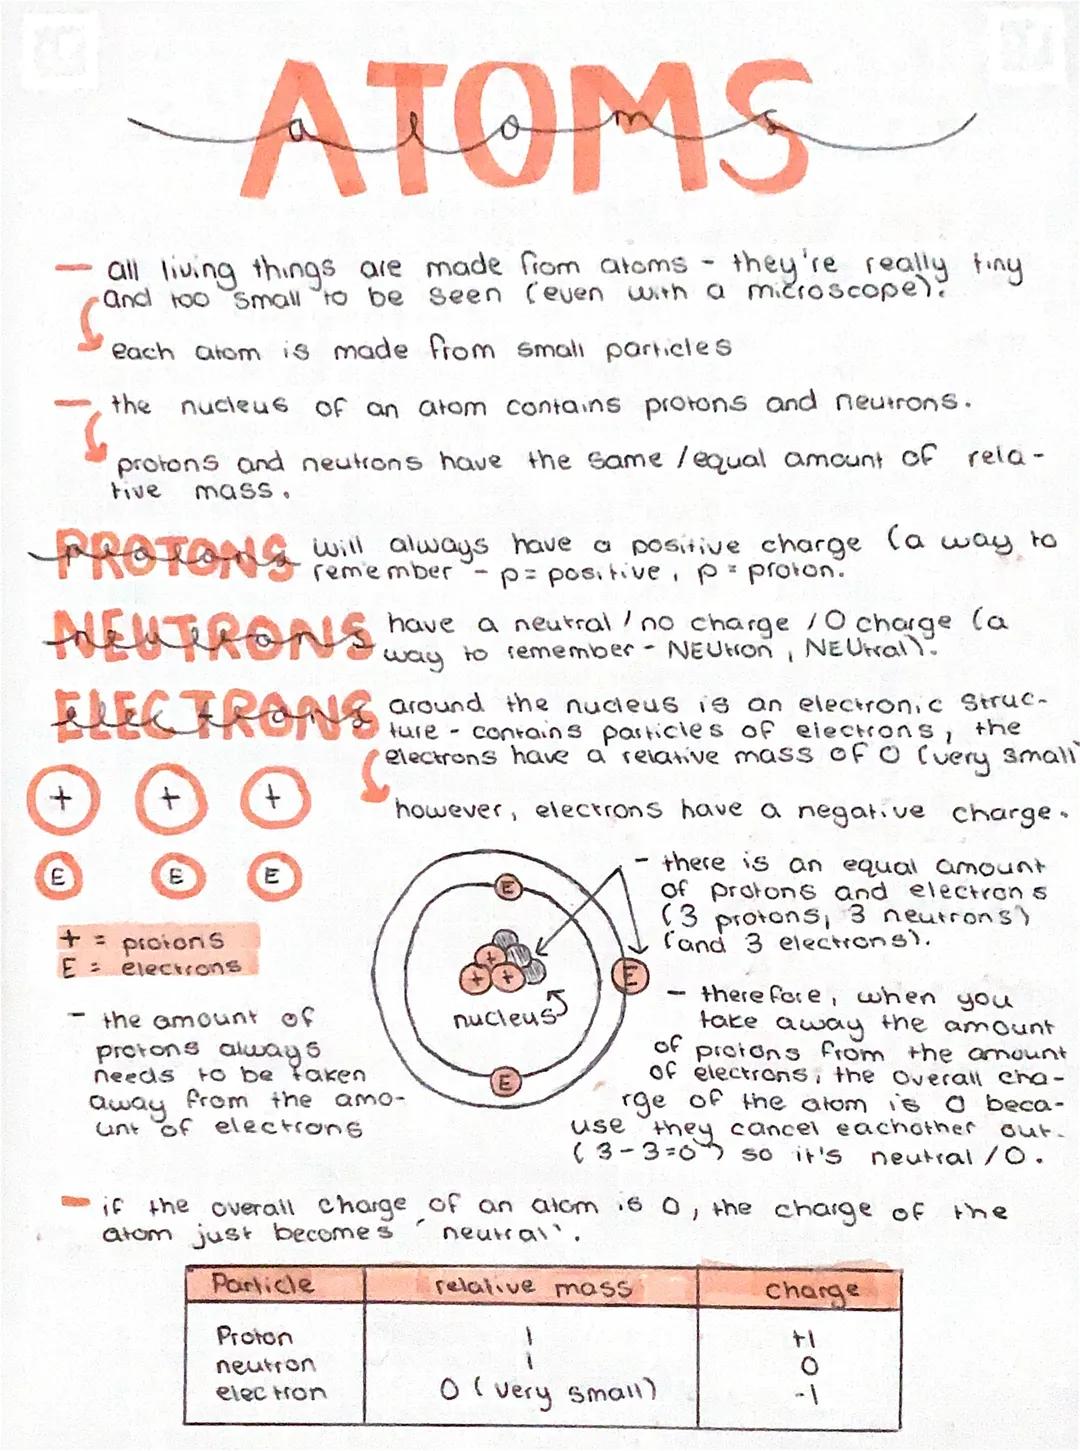 ATOMS
atoms
- all living things are made from atoms - they're really tiny
and too small to be seen (even with a microscope).
each atom is made from small particles
- the nucleus of an atom contains protons and neutrons.
protons and neutrons have the same/equal amount of rela-
tive mass.
PROTONS protons will always have a positive charge (a way to
remember - p= positive, p = proton.
NEUTRONS neutrons have a neutral/no charge/0 charge (a
way to remember - NEUtron, NEUtral).
ELECTRONS electrons around the nucleus is an electronic struc-
ture - contains particles of electrons, the
electrons have a relative mass of 0 (very small
however, electrons have a negative charge.
+ + +
E E E
+ = protons
E = electrons
- the amount of
protons always
needs to be taken
away from the amo-
unt of electrons
E
+
+ +
E
nucleus
E
- there is an equal amount
of protons and electrons
(3 protons, 3 neutrons)
(and 3 electrons).
- therefore, when you
take away the amount
of protons from the amount
of electrons, the overall cha-
rge of the atom is 0 beca-
use they cancel eachother out.
(3-3=0) so it's neutral/0.
- if the overall charge of an atom is 0, the charge of the
atom just becomes 'neutral'.
Particle relative mass charge
Proton 1 +1
neutron 1 0
electron 0 (very small) -1